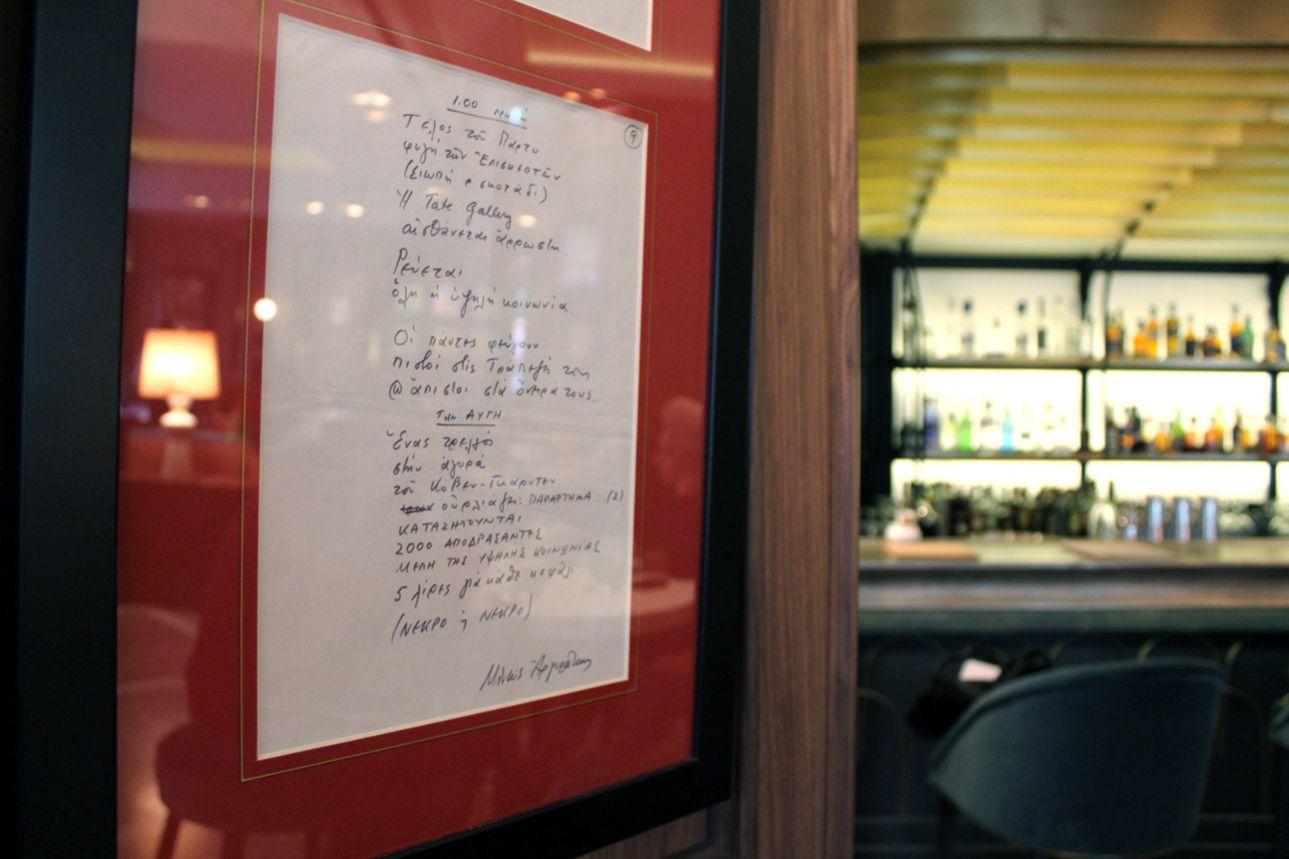 1.00 πρωΐ
9
Τέλος τοῦ Πάρτυ
φυγή τῶν Ἐπισκεπτῶν
(Σιωπή ε σκοτάδι)
Ἡ Tate Gallery
αἰσθάνεται ἄρρωστη.
Ρεύεται
ὅλη ἡ ὑψηλή κοινωνία.
Οἱ πάντες φεύγουν
πιστοί στίς Τράπεζές των
ἄπιστοι στά ὄνειρά τους..
ΤΗΝ ΑΥΓΗ
Ἕνας τρελλός
στήν ἀγορά
τοῦ Κόβεν-Γκάρντεν
οὐρλιάζει: ΠΑΡΑΡΤΗΜΑ...(2)
ΚΑΤΑΖΗΤΟΥΝΤΑΙ
2000 ΑΠΟΔΡΑΣΑΝΤΕΣ
ΜΕΛΗ ΤΗΣ ΥΨΗΛΗΣ ΚΟΙΝΩΝΙΑΣ
5 λίρες γιά κάθε κεφάλι
(ΝΕΚΡΟ ἤ ΝΕΚΡΟ)